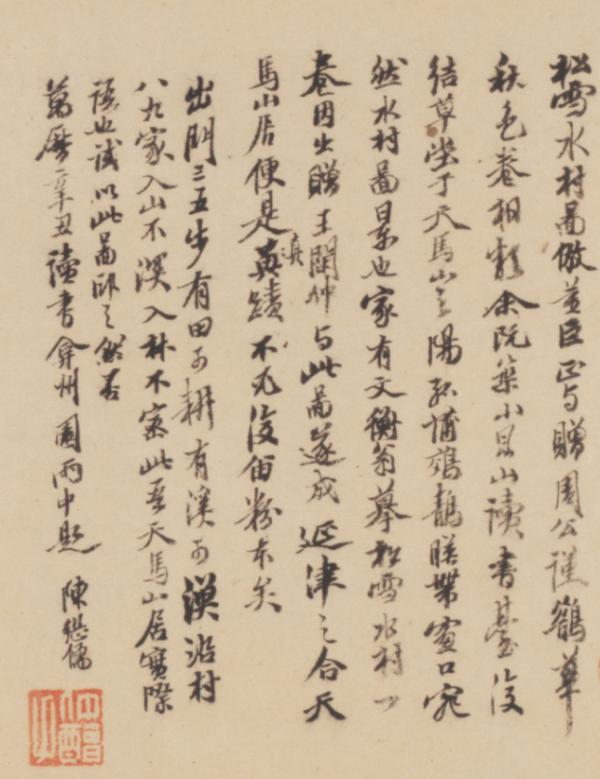 松雪水村圖倣董巨正與贈周公謹鵲華
秋色卷相類余既築小昆山讀書臺復
結草堂于天馬山之陽孤蒲映帶窗口宛
然水村圖景也家有文衡翁摹松雪水村一
卷因出贈王閏仲與此圖遂成延津之合天
馬山居便是真蹟不必復留粉本矣
出門三五步有田可耕有溪可漁沿村
八九家入山不深入林不密此吾天馬山居實際
語也試以此圖印之然否
萬曆辛丑讀書弇州園雨中題 陳繼儒